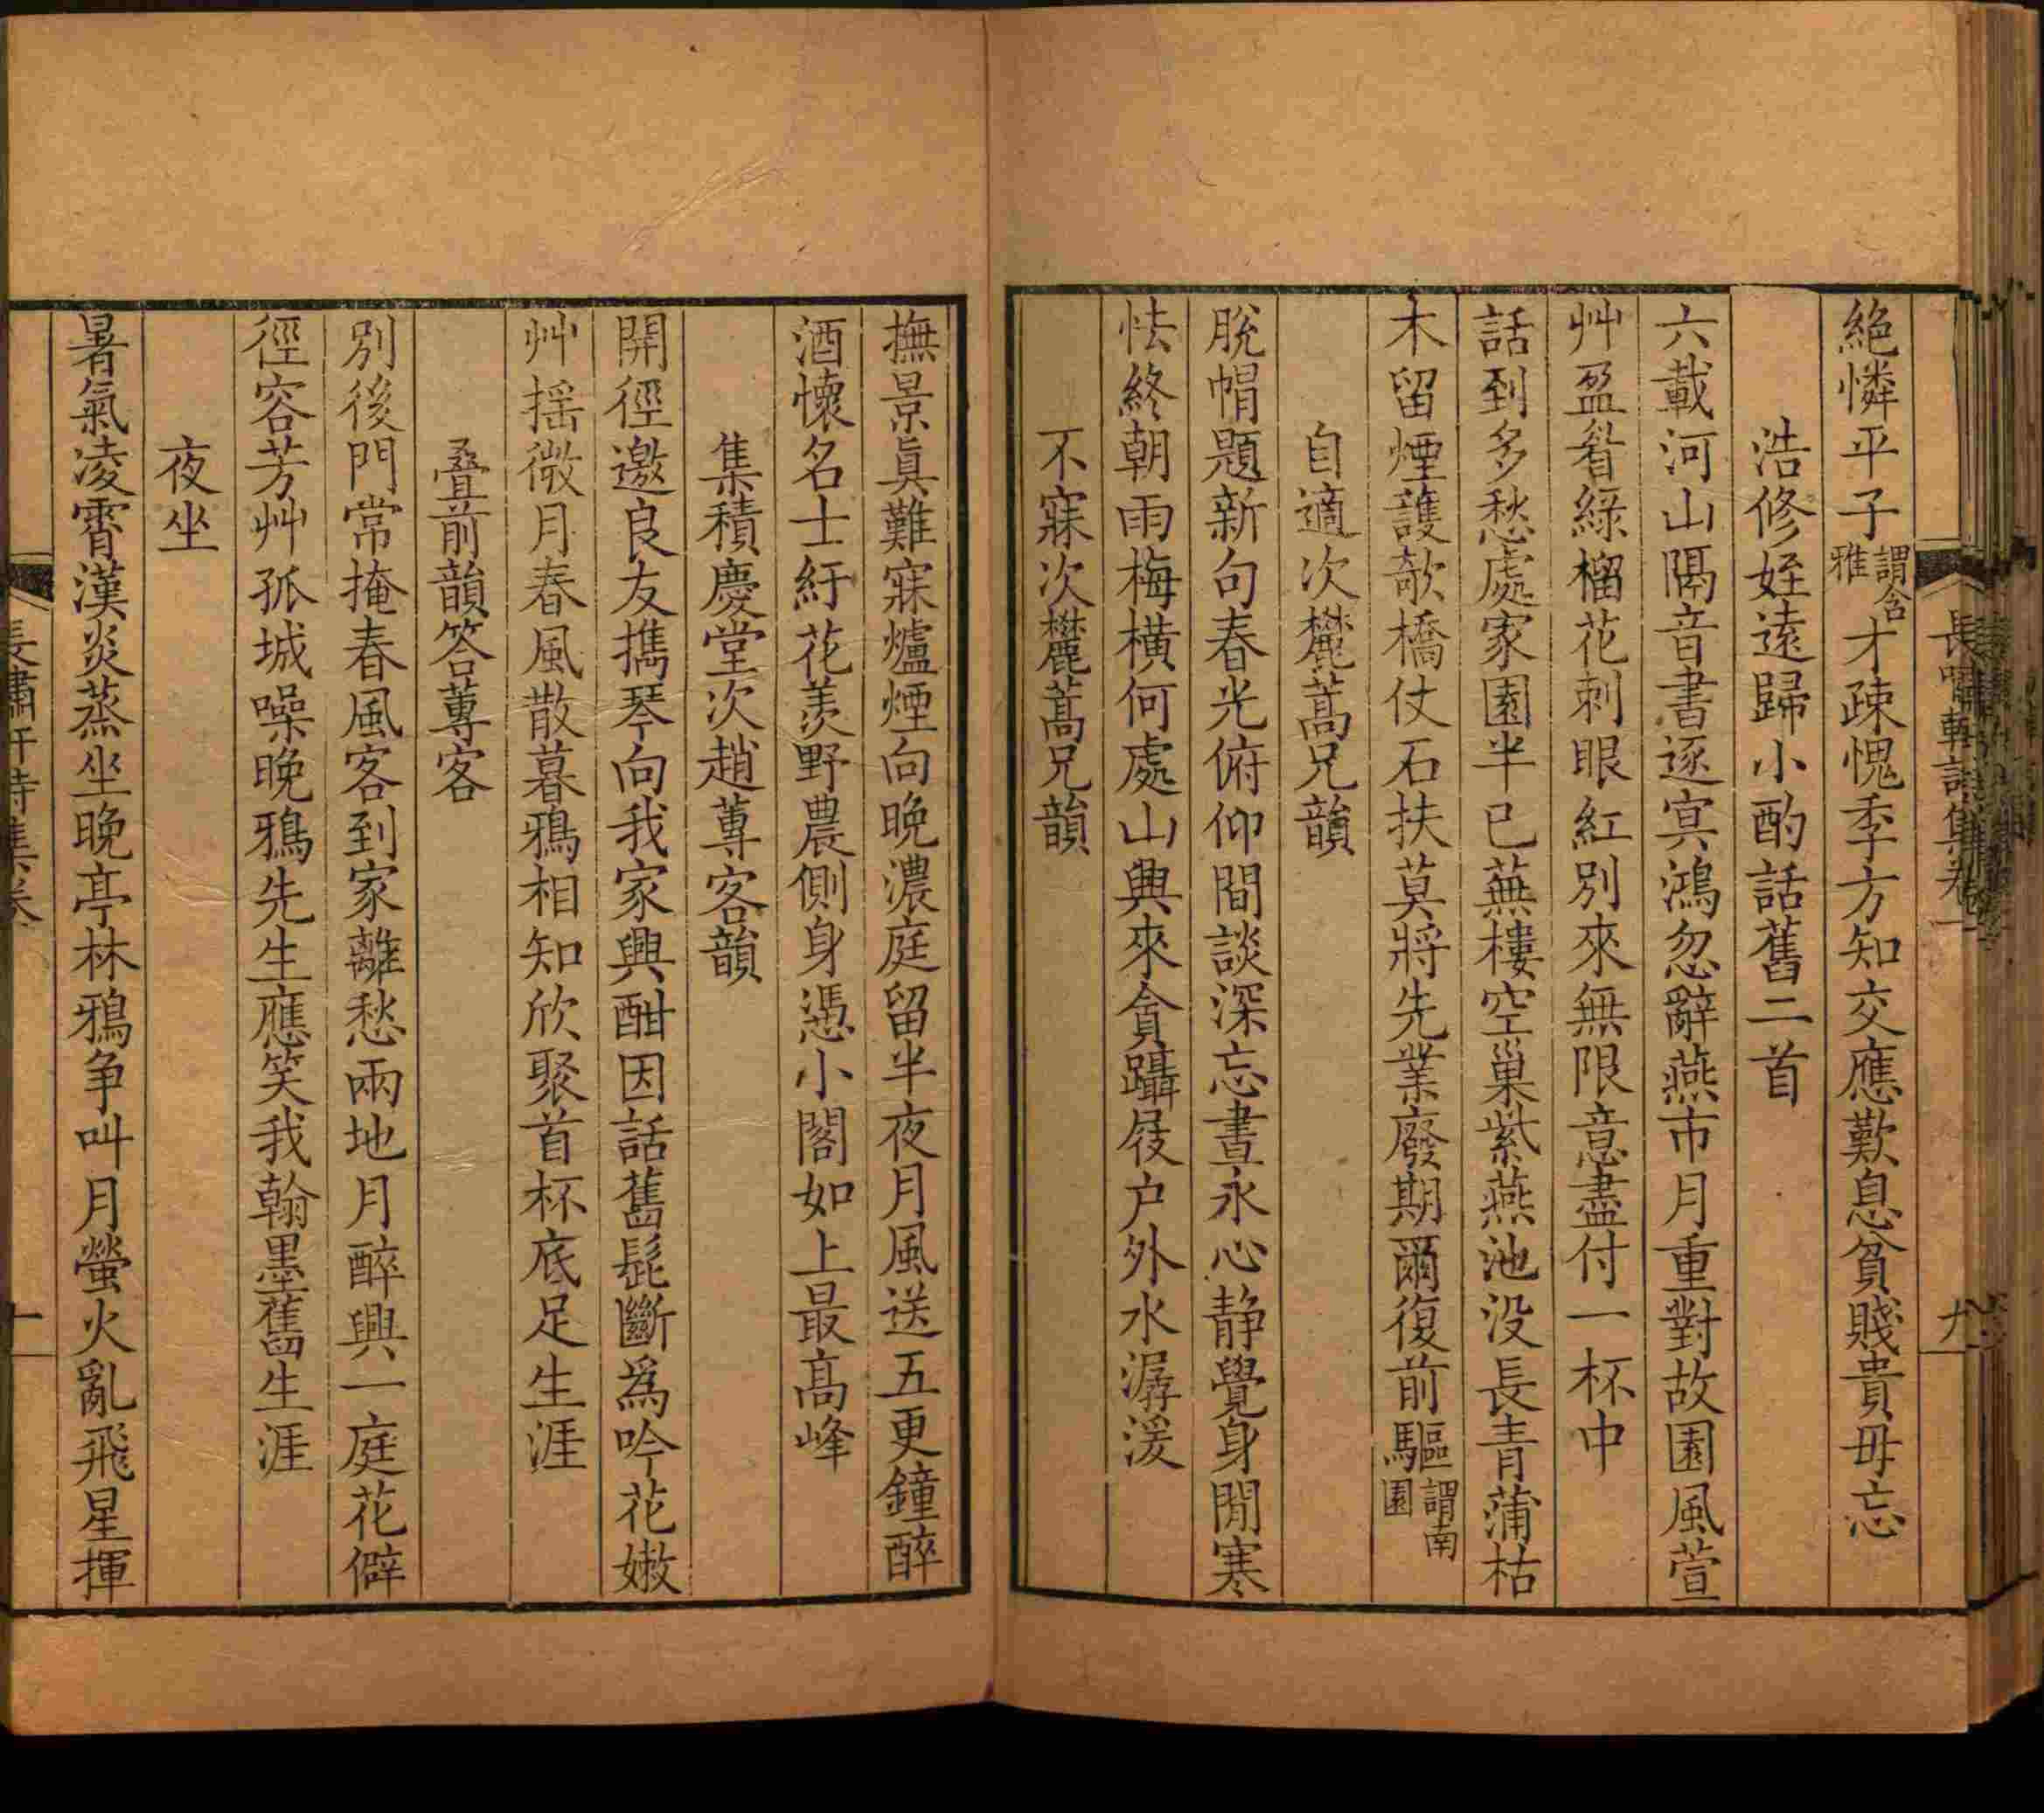 絶憐平子謂含雅才疎愧季方知交應歎息貧賤貴毋忘
浩修姪遠歸小酌話舊二首
六載河山隔音書逐寘鴻忽辭燕市月重對故園風萱
艸盈眥綠榴花刺眼紅別來無限意盡付一杯中
話到多愁處家園半已蕪樓空巢紫燕池没長青蒲枯
木留煙護欹橋仗石扶莫將先業廢期爾復前驅謂南園
自適次麓蒿兄韻
脫帽題新句春光俯仰間談深忘晝永心静覺身閒寒
怯終朝雨梅橫何處山興來貪躡屐户外水潺湲
不寐次麓蒿兄韻
撫景眞難寐爐煙向晚濃庭留半夜月風送五更鐘醉
酒懷名士紆花羨野農側身憑小閣如上最高峰
集積慶堂次趙蓴客韻
開徑邀良友擕琴向我家興酣因話舊髭斷爲吟花嫩
艸揺微月春風散暮鴉相知欣聚首杯底足生涯
叠前韻答蓴客
別後門常掩春風客到家離愁兩地月醉興一庭花僻
徑容芳艸孤城噪晚鴉先生應笑我翰墨舊生涯
夜坐
暑氣凌霄漢炎蒸坐晚亭林鴉争叫月螢火亂飛星揮